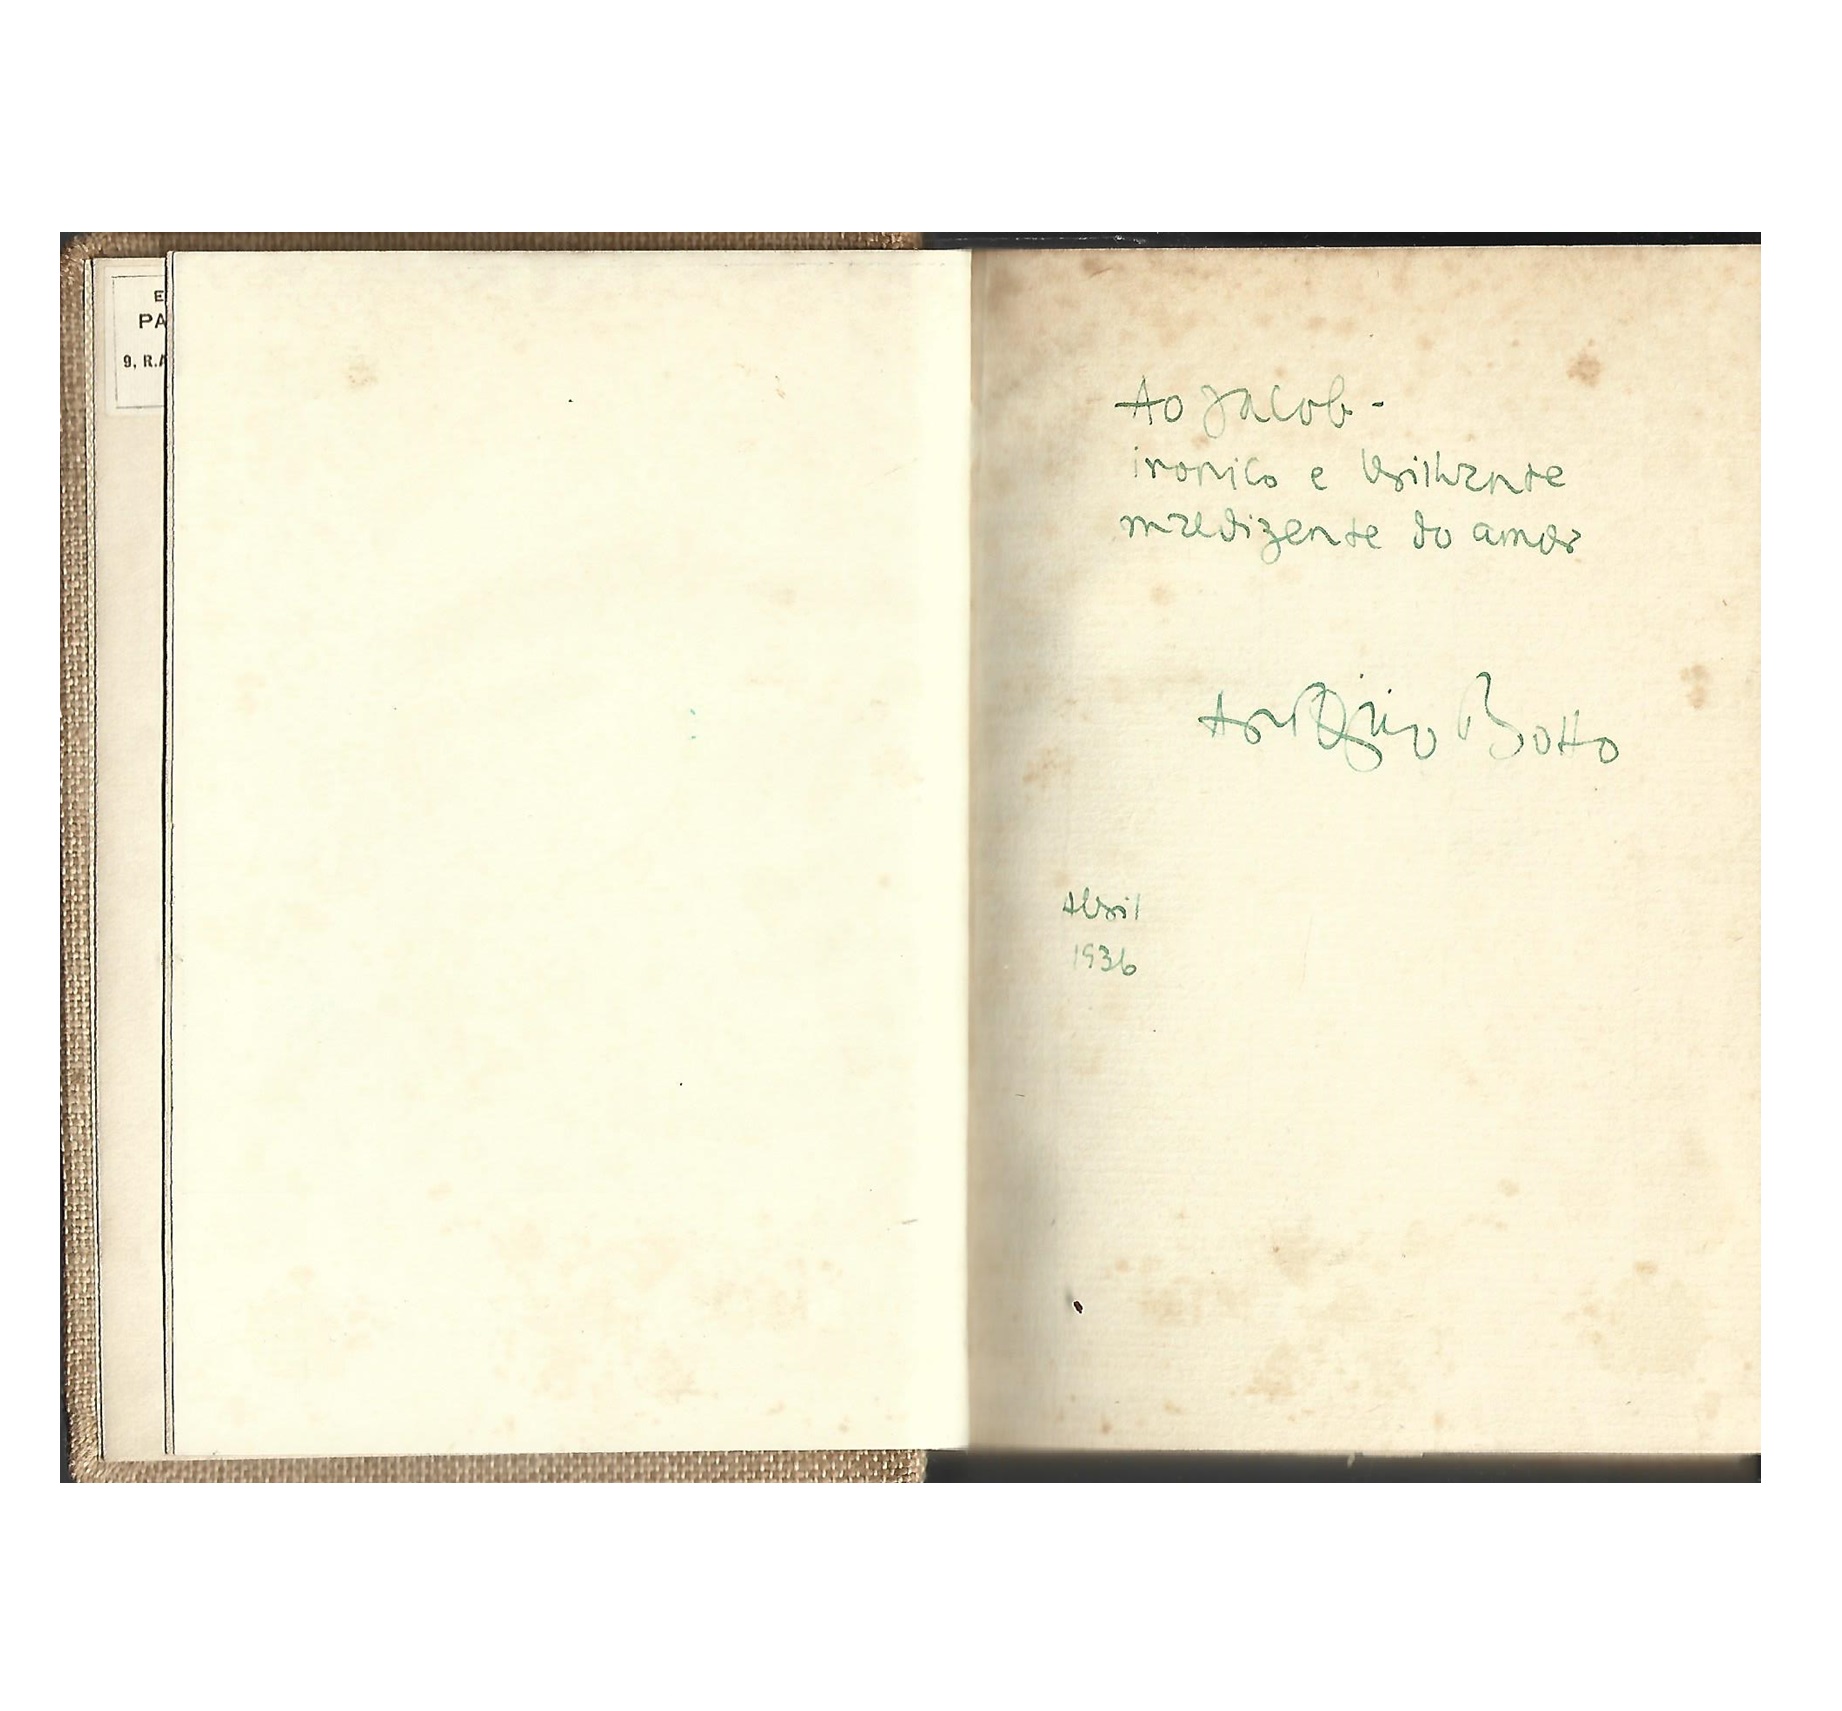 E
PA
9, R.A
Ao Jacob -
ironico e brilhante
maldizente do amor
Antonio Botto
Abril
1936